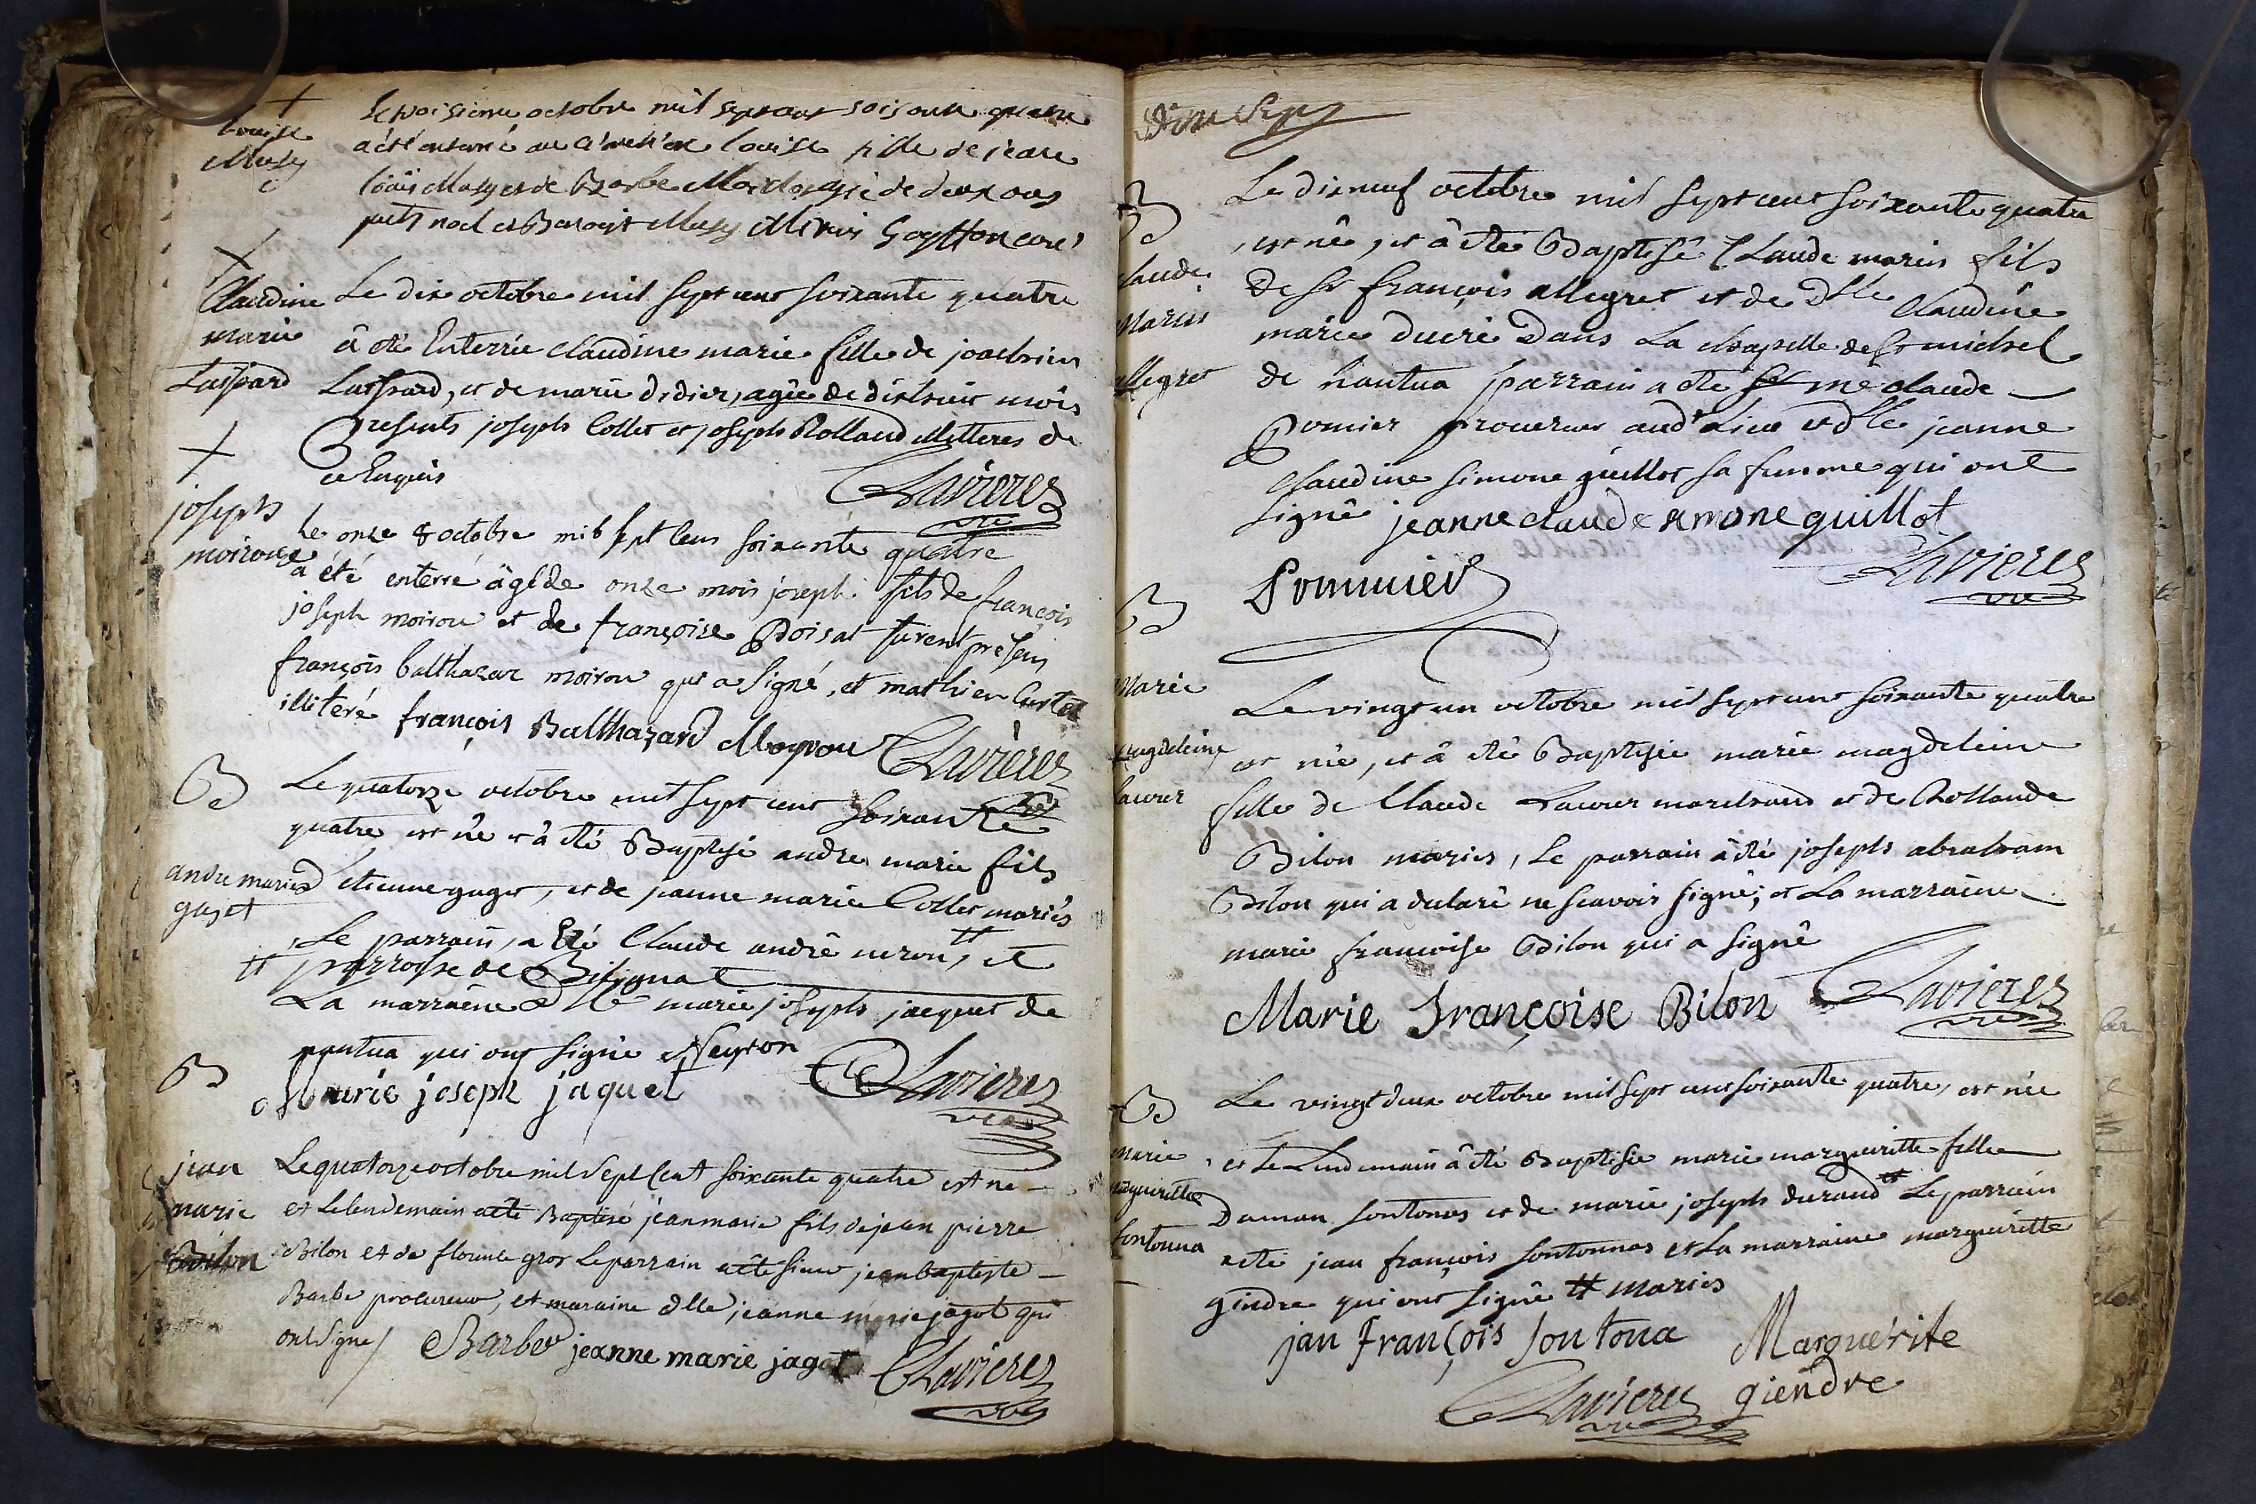 louise
Musy
Le troisieme octobre mil sept cent soisante quatre
a été enterré au cimetiere louise fille de jean
louis Musy et de Barbe agé de deux ans
pnts noel et Benoit Musy Goyffon curé
Claudine
marie
Laspard
Le dix octobre mil sept cent soixante quatre
â été Enterrée claudine marie fille de joachim
Laspard, et de marie didier, agée de dixhuit mois
Presents joseph Collet et joseph Rolland illitteres de
ce Enquis
Clavieres
vic
joseph
moiroux
Le onze 8 octobre mil sept cens soixante quatre
a été enterré âgé de onze mois joseph fils de françois
joseph moirou et de françoise Poisat furent presens
françois balthazar moirou qui a signé, et mathieu Curtet
illiteré françois Balthazard Moyrou Clavieres
vic
B
andre marie
gaget
Le quatorze octobre mil sept cent soixante
quatre, est né et â été Baptisé andre marie fils
d'étienne gaget, et de jeanne marie Collet mariés
Le parrain, a Eté Claude andré neron, tt et
tt parroisse de Bilignat
La marraine dlle marie joseph jacquet de
nantua qui ont signé Neyron
Marie joseph jaquet
Clavieres
vic
B
jean
marie
Bilon
Le quatorze octobre mil sept Cent soixante quatre est né
et le lendemain a eté Baptisé jean marie fils de jean pierre
Bilon et de florence gros Le parrain a été sieur jean baptiste
Barbe procureur, et maraine dlle jeanne marie jagot qui
ont signé / Barbe jeanne marie jagot Clavieres
vic
Dixsept
B
Claude
Marin
allegret
Le dixneuf octobre mil sept cent soixante quatre
est né, et â été Baptisé Claude marin fils
de sr françois allegret et de dlle Claudine
marie ducré Dans La chapelle de st michel
de nantua parrain a été sr me claude
Pomier procureur aud. Lieu et dlle jeanne
Claudine simone guillot sa femme qui ont
signé jeanne claude simone guillot
Pommier
Clavieres
vic
B
Marie
magdeleine
lacour
Le vingt un octobre mil sept cent soixante quatre
est née, et â été Baptisée marie magdeleine
fille de Claude Lacour marchand et de Rollande
Bilon mariés, Le parrain â été joseph abraham
Bilon qui a declaré ne scavoir signé; et La marraine
marie francoise Bilon qui a signé
Marie Françoise Bilon Clavieres
vic
B
marie
margueritte
fontonna
Le vingt deux octobre mil sept cent soixante quatre, est née
et le Lendemain â été Baptisée marie marguerite fille
Daman fontonas et de marie joseph durand tt Le parrain
a été jean françois fontonnas et La marraine marguerite
gindre qui ont signé tt mariés
jan François fontona Marguérite
giendre
Clavieres
vic